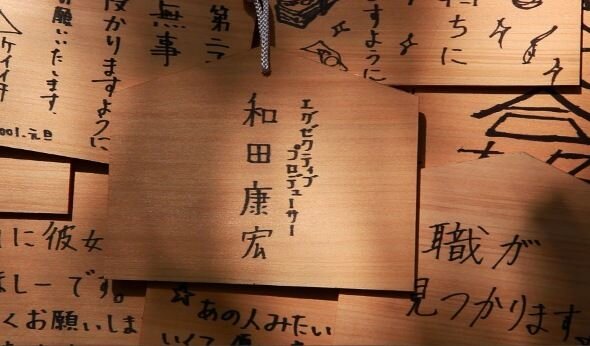 エグゼクティブ
プロデューサー
和田康宏
ちに
すように
第二
無事
授かりますように
お願いいたします。
ケイイチ
001.元旦
に彼女
ほしーです。
くお願いしま
☆あの人みたい
職が
見つかります